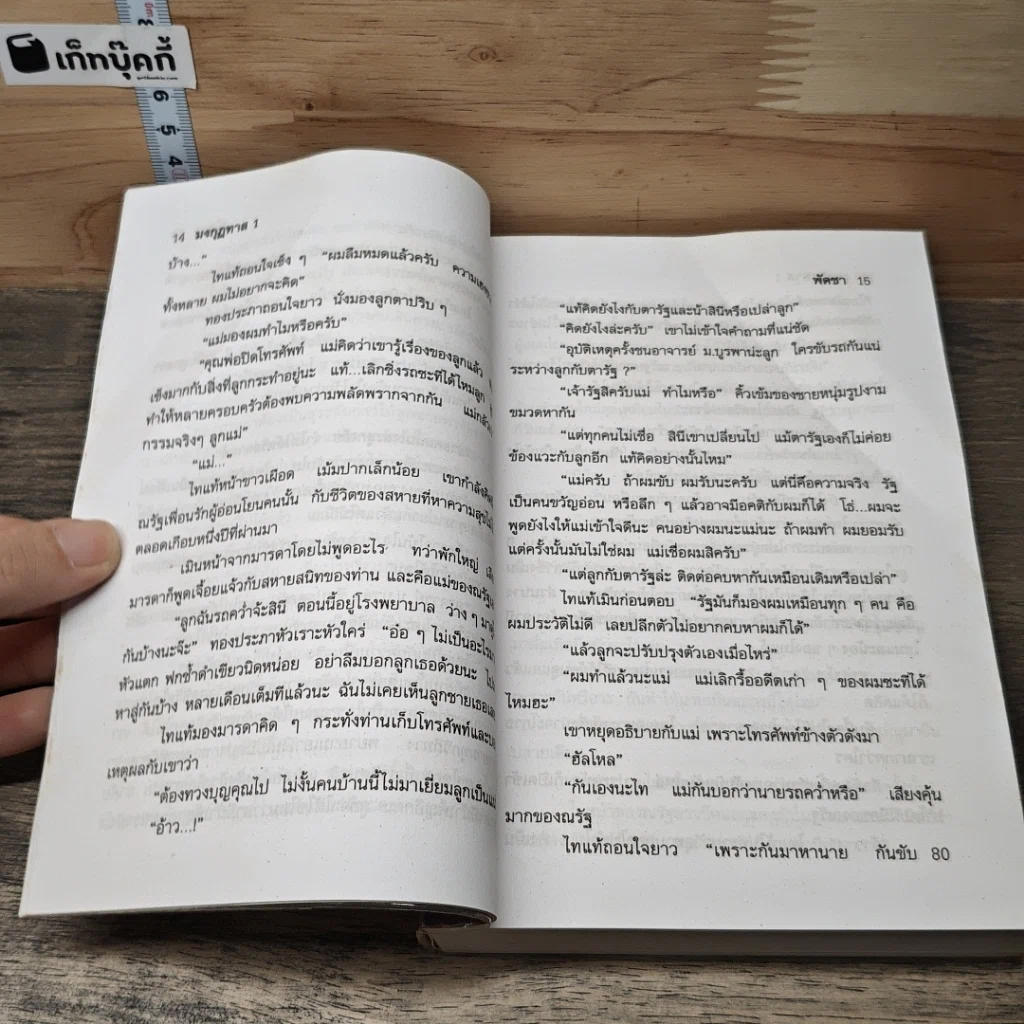 เก็ทบุ๊คกี้
6
5
4
14 มงกุฎทาส 1
บ้าง..."
ไทแท้ถอนใจเซ็ง ๆ "ผมลืมหมดแล้วครับ
ทั้งหลาย ผมไม่อยากจะคิด"
ทองประภาถอนใจยาว นั่งมองลูกตาปริบ ๆ
"แม่มองผมทำไมหรือครับ"
"คุณพ่อปิดโทรศัพท์ แม่คิดว่าเขารู้เรื่องของลูกแล้ว
เซ็งมากกับสิ่งที่ลูกกระทำอยู่นะ แท้...เลิกซิ่งรถซะทีได้ไหมลูก
ทำให้หลายครอบครัวต้องพบความพลัดพรากจากกัน แม่กลัว
กรรมจริงๆ ลูกแม่"
"แม่..."
ไทแท้หน้าขาวเผือด เม้มปากเล็กน้อย เขากำลัง
ณรัฐเพื่อนรักผู้อ่อนโยนคนนั้น กับชีวิตของสหายที่หาความสุข
ตลอดเกือบหนึ่งปีที่ผ่านมา
เมินหน้าจากมารดาโดยไม่พูดอะไร ทว่าพักใหญ่
มารดาก็พูดเจื้อยแจ้วกับสหายสนิทของท่าน และคือแม่ของณรัฐ
"ลูกฉันรถคว่ำจ้ะสินี ตอนนี้อยู่โรงพยาบาล ว่าง ๆ
กันบ้างนะจ๊ะ" ทองประภาหัวเราะหัวใคร่ "อ๋อ ๆ ไม่เป็นอะไร
หัวแตก ฟกช้ำดำเขียวนิดหน่อย อย่าลืมบอกลูกเธอด้วยนะ
หาสู่กันบ้าง หลายเดือนเต็มทีแล้วนะ ฉันไม่เคยเห็นลูกชายเธอ
ไทแท้มองมารดาคิด ๆ กระทั่งท่านเก็บโทรศัพท์และ
เหตุผลกับเขาว่า
"ต้องทวงบุญคุณไป ไม่งั้นคนบ้านนี้ไม่มาเยี่ยมลูกเป็น
"อ้าว...!"
พัดชา 15
"แท้คิดยังไงกับตารัฐและน้าสินีหรือเปล่าลูก"
"คิดยังไงล่ะครับ" เขาไม่เข้าใจคำถามที่แน่ชัด
"อุบัติเหตุครั้งชนอาจารย์ ม.บูรพาน่ะลูก ใครขับรถกันแน่
ระหว่างลูกกับตารัฐ ?"
"เจ้ารัฐสิครับแม่ ทำไมหรือ" คิ้วเข้มของชายหนุ่มรูปงาม
ขมวดหากัน
"แต่ทุกคนไม่เชื่อ สินีเขาเปลี่ยนไป แม้ตารัฐเองก็ไม่ค่อย
ข้องแวะกับลูกอีก แท้คิดอย่างนั้นไหม"
"แม่ครับ ถ้าผมขับ ผมรับนะครับ แต่นี่คือความจริง รัฐ
เป็นคนขวัญอ่อน หรือลึก ๆ แล้วอาจมีอคติกับผมก็ได้ โธ่...ผมจะ
พูดยังไงให้แม่เข้าใจดีนะ คนอย่างผมนะแม่นะ ถ้าผมทำ ผมยอมรับ
แต่ครั้งนั้นมันไม่ใช่ผม แม่เชื่อผมสิครับ"
"แต่ลูกกับตารัฐล่ะ ติดต่อคบหากันเหมือนเดิมหรือเปล่า"
ไทแท้เมินก่อนตอบ "รัฐมันก็มองผมเหมือนทุก ๆ คน คือ
ผมประวัติไม่ดี เลยปลีกตัวไม่อยากคบหาผมก็ได้"
"แล้วลูกจะปรับปรุงตัวเองเมื่อไหร่"
"ผมทำแล้วนะแม่ แม่เลิกรื้ออดีตเก่า ๆ ของผมซะทีได้
ไหมฮะ"
เขาหยุดอธิบายกับแม่ เพราะโทรศัพท์ข้างตัวดังมา
"ฮัลโหล"
"กันเองนะไท แม่กันบอกว่านายรถคว่ำหรือ" เสียงคุ้น
มากของณรัฐ
ไทแท้ถอนใจยาว "เพราะกันมาหานาย กันขับ 80